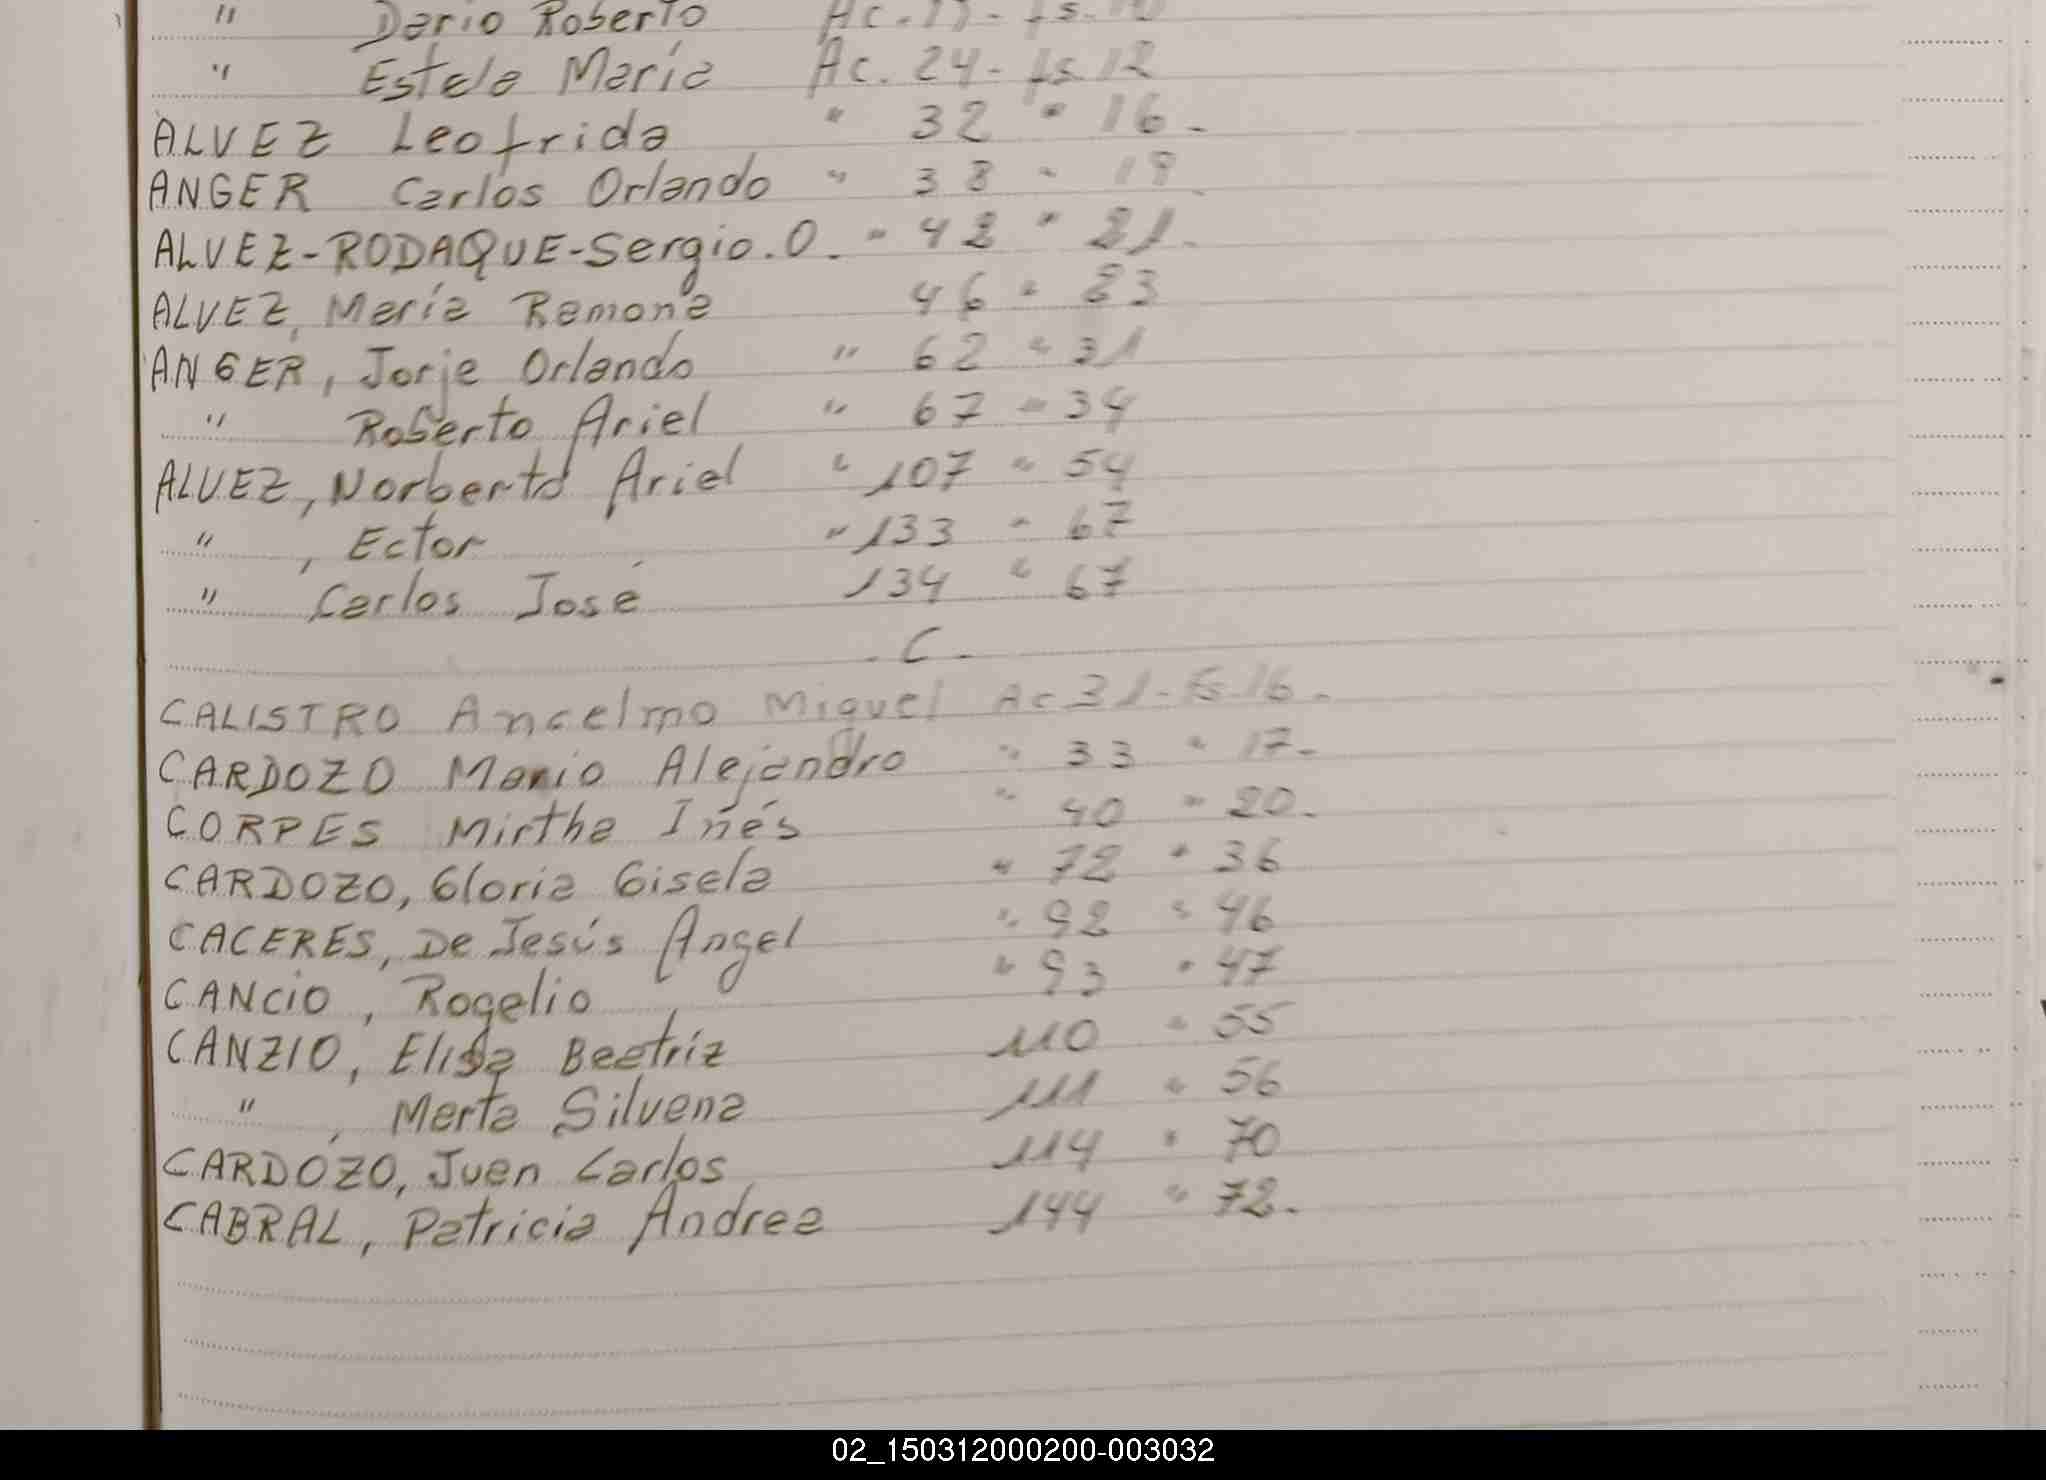 " Dario Roberto Ac. fs.
" Estela María Ac. 24 - fs. 12
ALVEZ Leofrida " 32 " 16 -
ANGER Carlos Orlando " 38 " 19
ALVEZ-RODAQUE-Sergio. O. " 42 " 21 -
ALVEZ, María Ramona 46 " 23
ANGER, Jorje Orlando " 62 " 31
" Roberto Ariel " 67 " 34
ALVEZ, Norberto Ariel " 107 " 54
" , Ector " 133 " 67
" Carlos José 134 " 67
- C -
CALISTRO Ancelmo Miguel Ac 31 - fs 16 -
CARDOZO Mario Alejandro " 33 " 17 -
CORPES Mirtha Inés " 40 " 20 -
CARDOZO, Gloria Gisela " 72 " 36
CACERES, De Jesús Angel " 92 " 46
CANCIO, Rogelio " 93 " 47
CANZIO, Elisa Beatríz 110 " 55
" , Marta Silvana 111 " 56
CARDOZO, Juan Carlos 114 " 70
CABRAL, Patricia Andrea 144 " 72 -
02_150312000200-003032